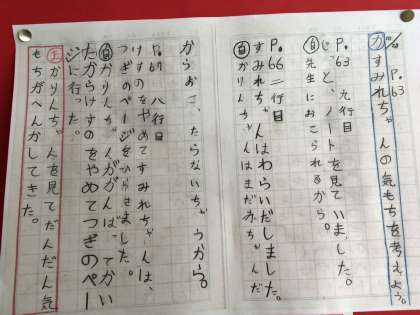 P.63
すみれちゃんの気もちを考えよう。
P.63 九行目
じっと、ノートを見ていました。
自 先生におこられるから。
P.66 二行目
すみれちゃんはわらいだしました。
自 かりんちゃんはまだ赤ちゃんだ
からおこったらないちゃうから。
P.67 八行目
けすのをやめてすみれちゃんは、
つぎのページをひらきました。
自 かりんちゃんががんばってかい
たからけすのをやめてつぎのペー
ジに行った。
かりんちゃんを見てだんだん気
もちがへんかしてきた。